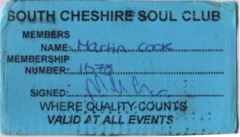 SOUTH CHESHIRE SOUL CLUB
MEMBERS
NAME: Martin Cook
MEMBERSHIP
NUMBER:
SIGNED:
WHERE QUALITY COUNTS
VALID AT ALL EVENTS